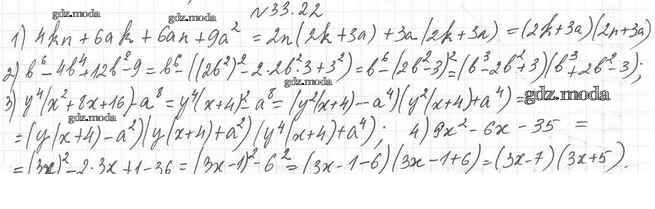 gdz.moda
gdz.moda
№33.22
1) 4kn + 6ak + 6an + 9a² = 2n(2k+3a) + 3a(2k+3a) = (2k+3a)(2n+3a)
2) b⁶ - 4b⁴ + 12b² - 9 = b⁶ - ((2b²)² - 2·2b²·3 + 3²) = b⁶ - (2b²-3)² = (b³ - 2b² + 3)(b³ + 2b² - 3);
gdz.moda
3) y⁴(x² + 8x + 16) - a⁸ = y⁴(x+4)² - a⁸ = (y²(x+4) - a⁴)(y²(x+4) + a⁴) =
gdz.moda
gdz.moda
= (y(x+4) - a²)(y(x+4) + a²)(y⁴(x+4) + a⁴); 4) 9x² - 6x - 35 =
= (3x)² - 2·3x + 1 - 36 = (3x-1)² - 6² = (3x - 1 - 6)(3x - 1 + 6) = (3x - 7)(3x + 5).